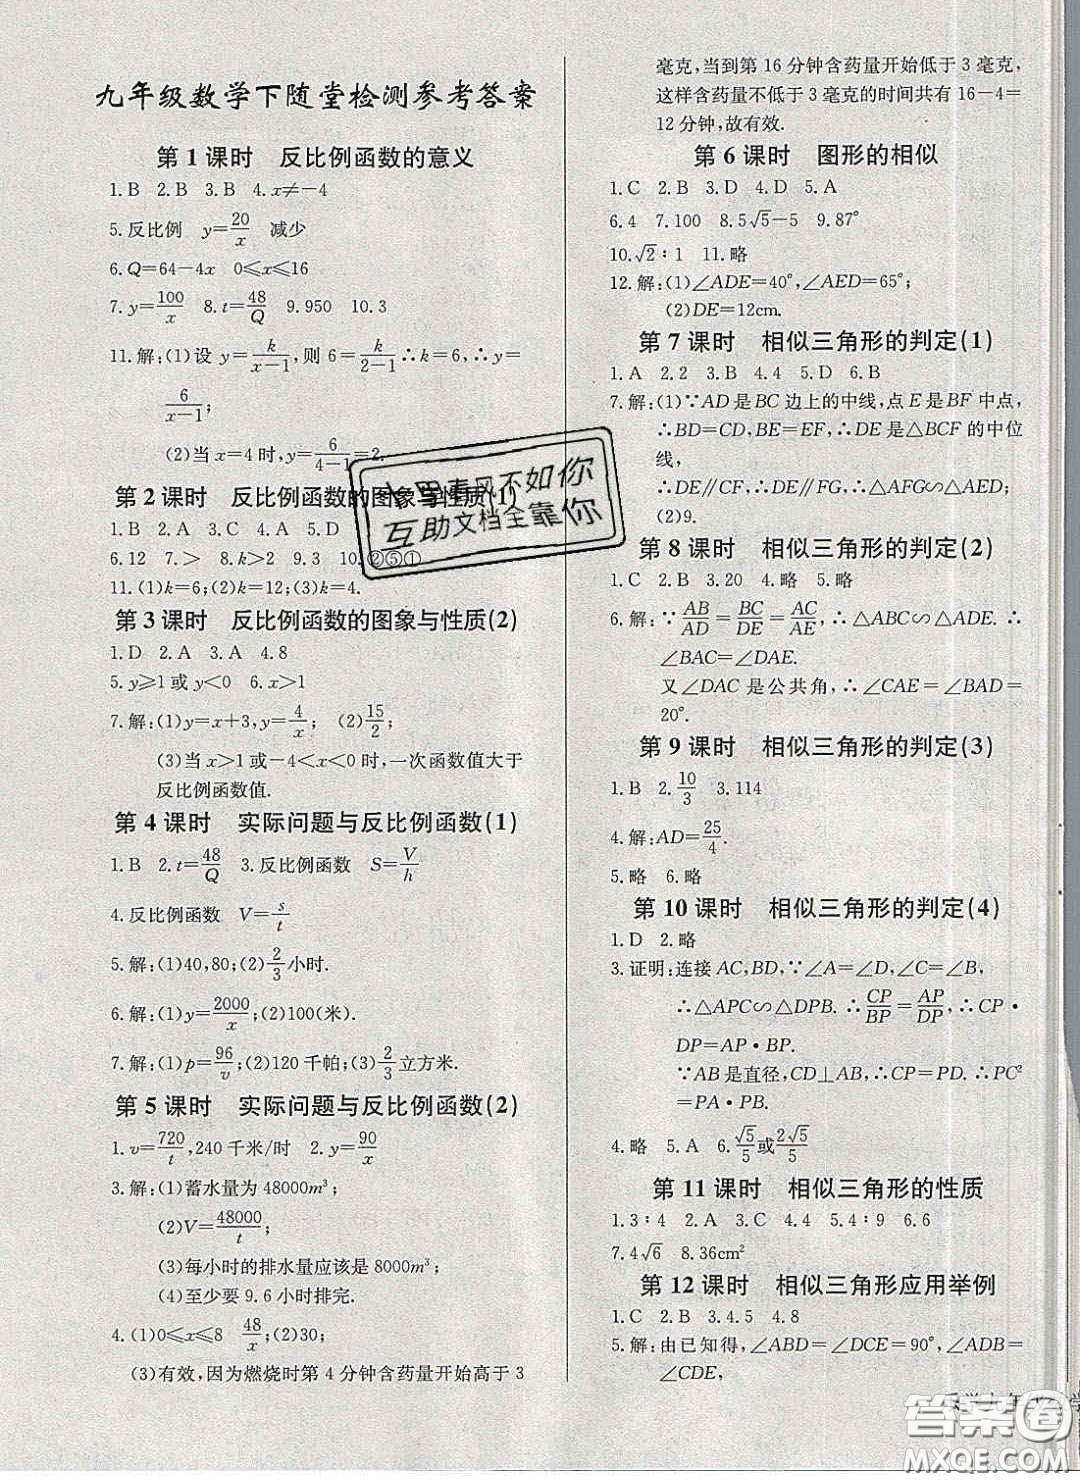 九年级数学下随堂检测参考答案
第1课时 反比例函数的意义
1.B 2.B 3.B 4.x≠-4
5.反比例 y=20/x 减少
6.Q=64-4x 0≤x≤16
7.y=100/x 8.t=48/Q 9.950 10.3
11.解:(1)设 y=k/(x-1),则 6=k/(2-1)∴k=6,∴y=
6/(x-1);
(2)当x=4时,y=6/(4-1)=2.
第2课时 反比例函数的图象与性质(1)
1.B 2.A 3.C 4.A 5.D
6.12 7.> 8.k>2 9.3 10.②⑤①
11.(1)k=6;(2)k=12;(3)k=4.
第3课时 反比例函数的图象与性质(2)
1.D 2.A 3.A 4.8
5.y≥1或y<0 6.x>1
7.解:(1)y=x+3,y=4/x; (2)15/2;
(3)当x>1或-4<x<0时,一次函数值大于
反比例函数值.
第4课时 实际问题与反比例函数(1)
1.B 2.t=48/Q 3.反比例函数 S=V/h
4.反比例函数 V=s/t
5.解:(1)40,80;(2)2/3小时.
6.解:(1)y=2000/x;(2)100(米).
7.解:(1)p=96/v;(2)120千帕;(3)2/3立方米.
第5课时 实际问题与反比例函数(2)
1.v=720/t,240千米/时 2.y=90/x
3.解:(1)蓄水量为48000m³;
(2)V=48000/t;
(3)每小时的排水量应该是8000m³;
(4)至少要9.6小时排完.
4.(1)0≤x≤8 48/x;(2)30;
(3)有效,因为燃烧时第4分钟含药量开始高于3
毫克,当到第16分钟含药量开始低于3毫克,
这样含药量不低于3毫克的时间共有16-4=
12分钟,故有效.
第6课时 图形的相似
1.C 2.B 3.D 4.D 5.A
6.4 7.100 8.5√5-5 9.87°
10.√2∶1 11.略
12.解:(1)∠ADE=40°,∠AED=65°;
(2)DE=12cm.
第7课时 相似三角形的判定(1)
1.A 2.2 3.B 4.4 5.D 6.B
7.解:(1)∵AD是BC边上的中线,点E是BF中点,
∴BD=CD,BE=EF,∴DE是△BCF的中位
线,
∴DE∥CF,∴DE∥FG,∴△AFG∽△AED;
(2)9.
第8课时 相似三角形的判定(2)
1.C 2.B 3.20 4.略 5.略
6.解:∵AB/AD=BC/DE=AC/AE,∴△ABC∽△ADE.∴
∠BAC=∠DAE.
又∠DAC是公共角,∴∠CAE=∠BAD=
20°.
第9课时 相似三角形的判定(3)
1.B 2.10/3 3.114
4.解:AD=25/4.
5.略 6.略
第10课时 相似三角形的判定(4)
1.D 2.略
3.证明:连接AC,BD,∵∠A=∠D,∠C=∠B,
∴△APC∽△DPB.∴CP/BP=AP/DP,∴CP·
DP=AP·BP.
∵AB是直径,CD⊥AB,∴CP=PD.∴PC²
=PA·PB.
4.略 5.A 6.√5/5或2√5/5
第11课时 相似三角形的性质
1.3∶4 2.A 3.C 4.4 5.4∶9 6.6
7.4√6 8.36cm²
第12课时 相似三角形应用举例
1.C 2.B 3.4.5 4.8
5.解:由已知得,∠ABD=∠DCE=90°,∠ADB=
∠CDE.
春风不如你
互助文档全靠你
答案圈
MXQE.COM